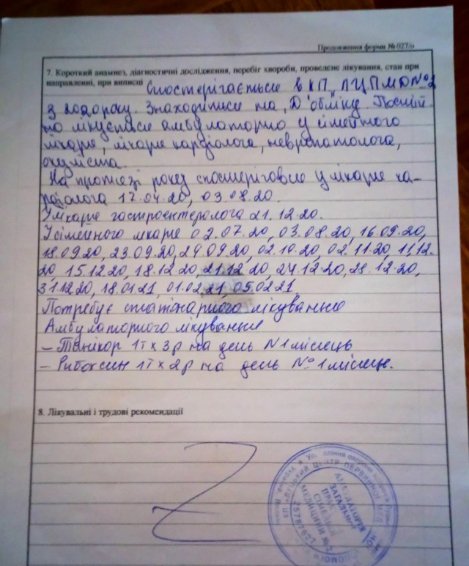 Продовження форми № 027/о
7. Короткий анамнез, діагностичні дослідження, перебіг хвороби, проведене лікування, стан при
направленні, при виписці Спостерігається в КП „ЛЦПМСД №2
з 2020 року. Знаходиться на „Д" обліку. Постій
но лікується амбулаторно у сімейного
лікаря, лікаря кардіолога, невропатолога,
окуліста.
На протязі року спостерігався у лікаря ка-
рдіолога 17.04.20, 03.08.20.
У лікаря гастроентеролога 21.12.20.
У сімейного лікаря 02.07.20, 03.08.20, 16.09.20,
18.09.20, 23.09.20, 24.09.20, 02.10.20, 02.11.20, 11.12.
20, 15.12.20, 18.12.20, 21.12.20, 24.12.20, 28.12.20,
31.12.20, 18.01.21, 01.02.21, 05.02.21
Потребує стаціонарного лікування
Амбулаторного лікування
– 1т х 3р на день N 1 місяць
– Рибоксин 1т х 2р на день № 1 місяць.
8. Лікувальні і трудові рекомендації